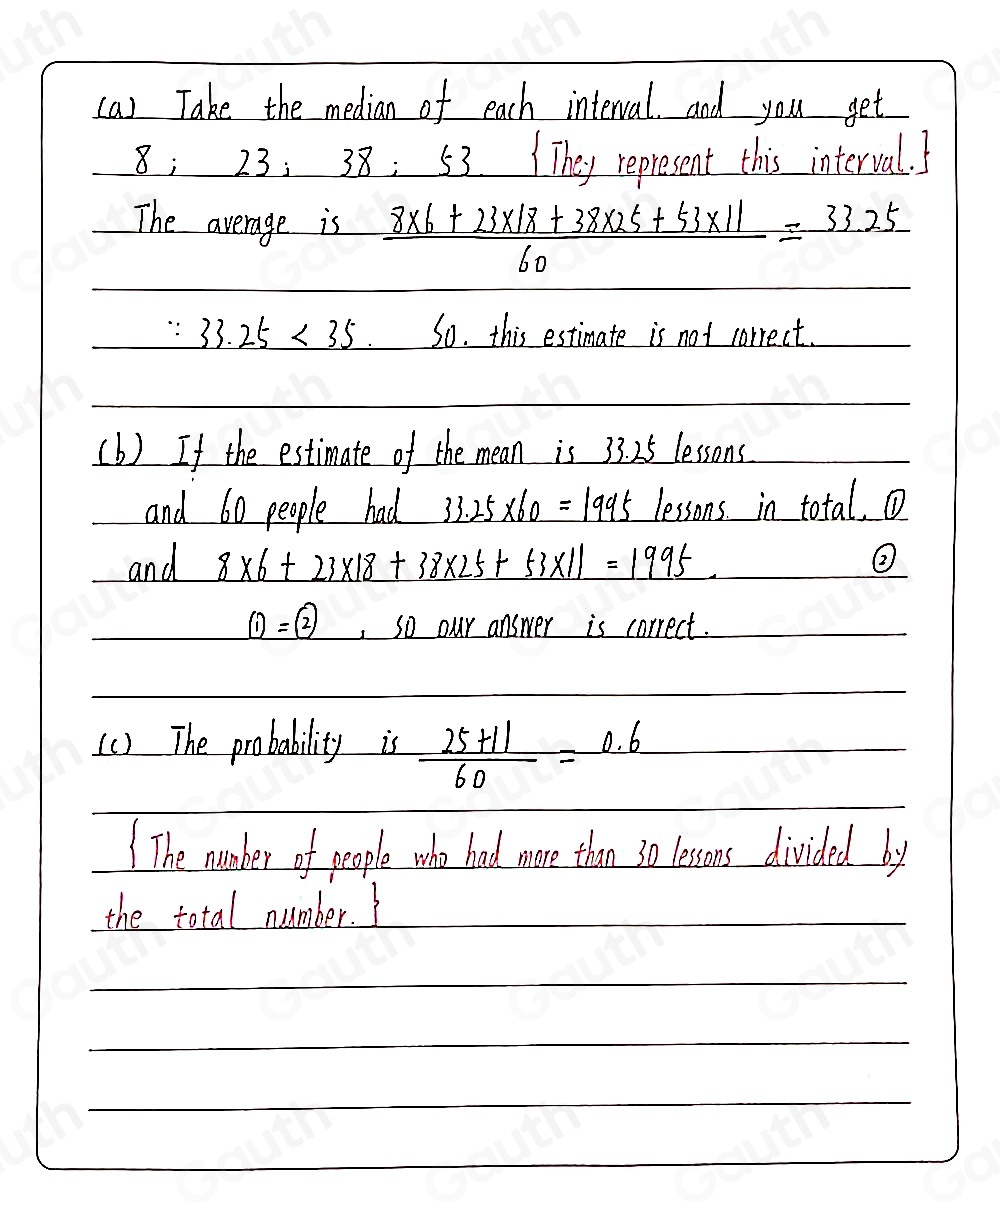 (a) Take the median of each interval. and you get
8; 23; 38; 53. {They represent this interval.}
The average is 8×6 + 23×18 + 38×25 + 53×11 / 60 = 33.25
∵ 33.25 < 35. So. this estimate is not correct.
(b) If the estimate of the mean is 33.25 lessons
and 60 people had 33.25×60 = 1995 lessons in total. ①
and 8×6 + 23×18 + 38×25 + 53×11 = 1995. ②
① = ②, so our answer is correct.
(c) The probability is 25+11 / 60 = 0.6
{The number of people who had more than 30 lessons divided by
the total number.}